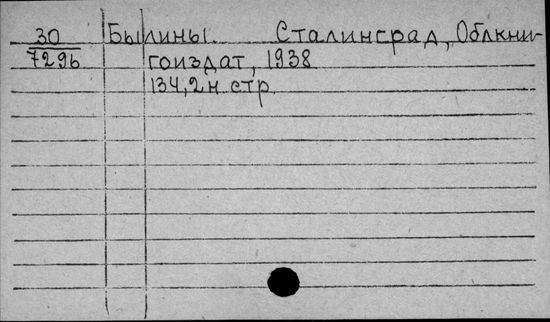 30 Былины. Сталинград, Облкни-
7296 гоиздат, 1938
134,2н. стр.